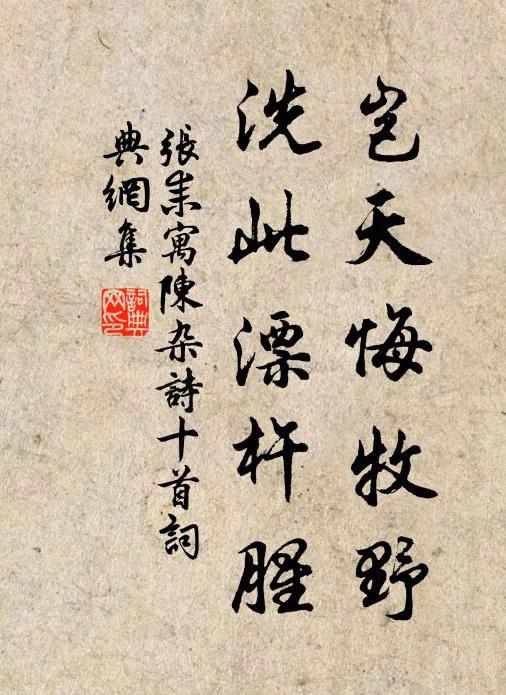 岂天悔牧野
洗此漂杵腥
張耒寓陳杂詩十首詞
典網集
詞典
网印